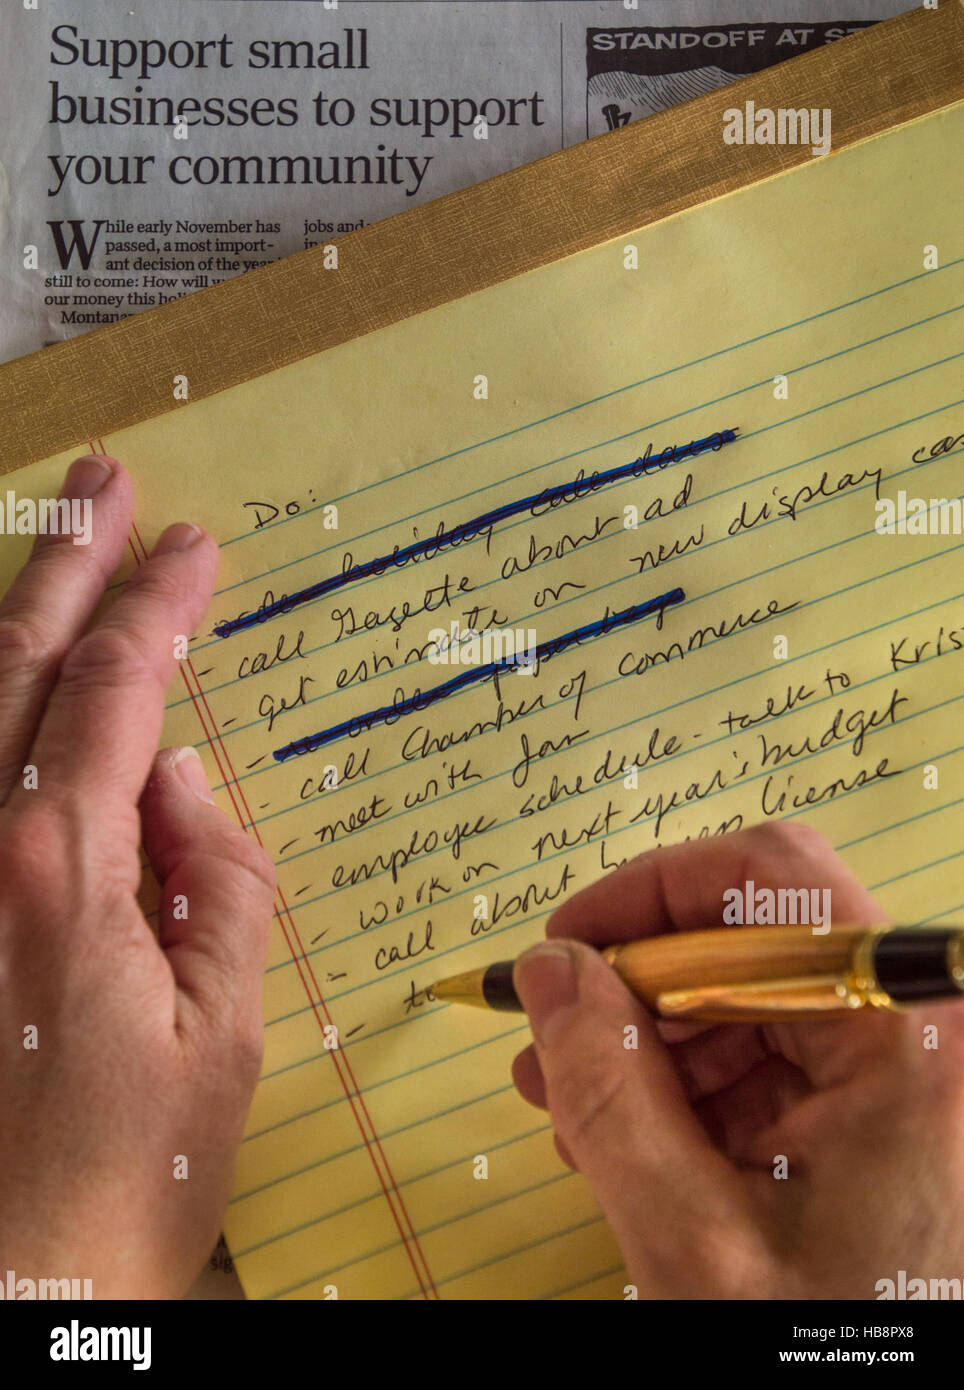 Support small
businesses to support
your community
STANDOFF AT
While early November has
passed, a most import-
ant decision of the year
still to come: How will
our money this
jobs and
in
Do:
- order holiday calendars
- call Gazette about ad
- get estimate on new display
- re order paper bag
- call Chamber of commerce
- meet with Jan
- employee schedule - talk to Kris
- work on next year's budget
- call about business license
-
a
alamy stock photo
HB8PX8
www.alamy.com